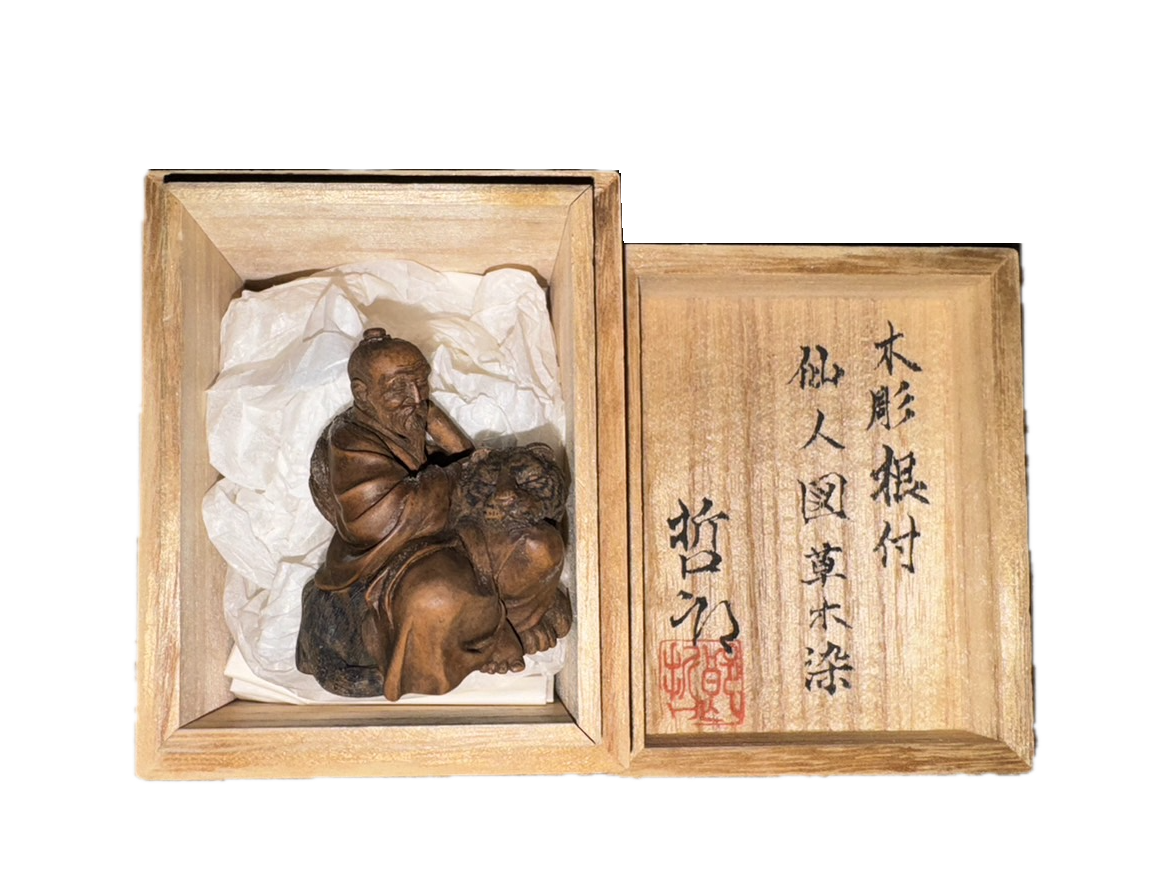 木彫根付
仙人図草木染
哲郎